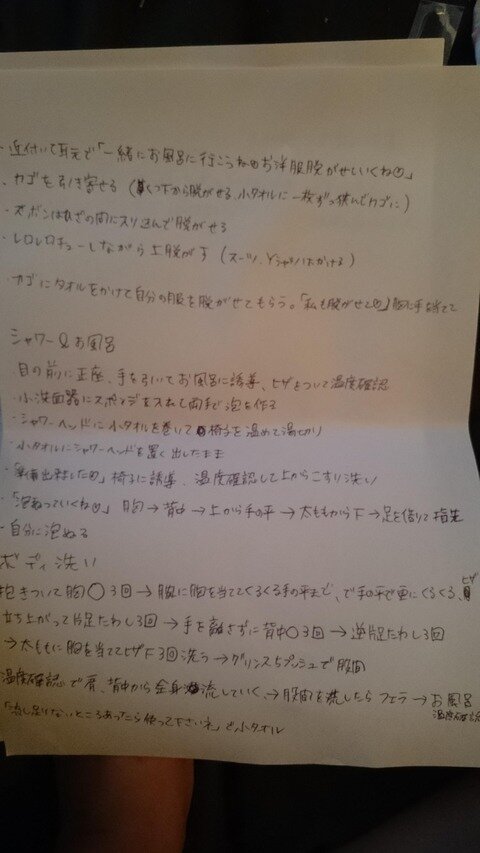 ・近付いて耳元で「一緒にお風呂に行こうね♡お洋服脱がせいくね♡」
・カゴを引き寄せる（くつ下から脱がせる、小タオルに一枚ずつ挟んでカゴに）
・ズボンはひざの間にスリ込んで脱がせる
・レロレロチューしながら上脱がす（スーツ、Yシャツはかける）
・カゴにタオルをかけて自分の服を脱がせてもらう。「私も脱がせて♡」胸に手を当てて
シャワー&お風呂
・目の前に正座、手を引いてお風呂に誘導、ヒザをついて温度確認
・小洗面器にスポンジを入れ両手で泡を作る
・シャワーヘッドに小タオルを巻いて椅子を温めて湯切り
・小タオルにシャワーヘッドを置く出したまま
・「準備出来ました♡」椅子に誘導、温度確認して上からこすり洗い
・「泡ぬっていくね♡」胸→背中→上から手の平→太ももから下→足を借りて指先
・自分に泡ぬる
ボディ洗い
抱きついて胸○3回→腕に胸を当ててくるくる手の平まで、で手の平で更にくるくる、ヒザ
立ち上がって片足たわし3回→手を離さずに背中○3回→逆足たわし3回
→太ももに胸を当ててヒザ下3回洗う→グリンス5プッシュで股間
温度確認で肩、背中から全身流していく、→股間を流したらフェラ→お風呂
温度確認
「流し足りないところあったら使って下さいネ」で小タオル